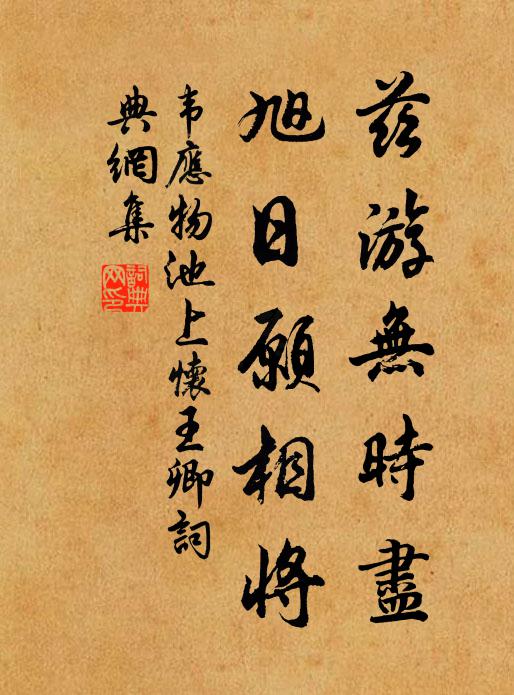 兹游無時盡
旭日願相将
韦應物池上懷王卿詞
典網集
詞典
网印